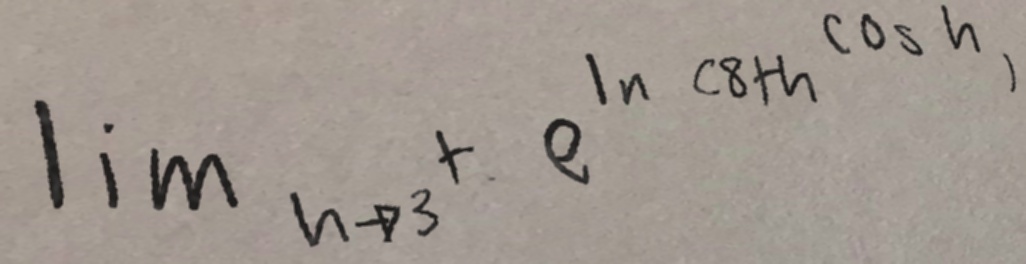 lim h→3⁺ e^{ln (8+h^{cos h})}